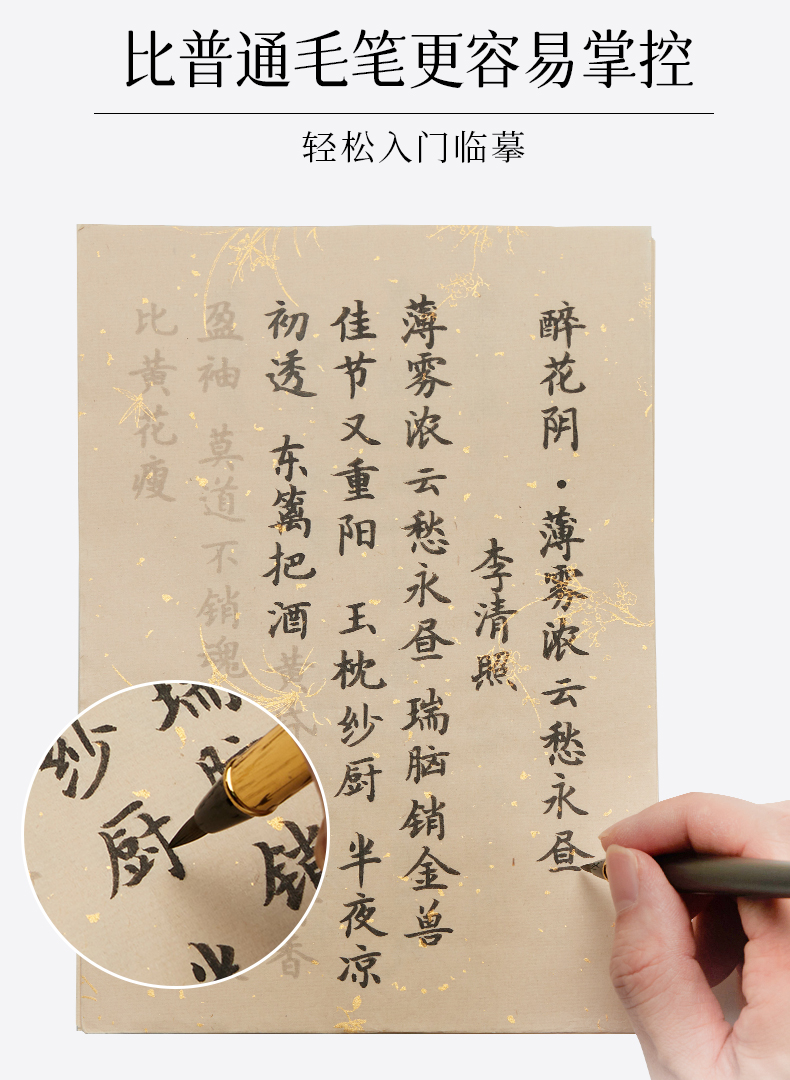 比普通毛笔更容易掌控
轻松入门临摹
醉花阴·薄雾浓云愁永昼
李清照
薄雾浓云愁永昼 瑞脑销金兽
佳节又重阳 玉枕纱厨 半夜凉
初透 东篱把酒 黄昏 香
盈袖 莫道不销魂
比黄花瘦
瑞 销
纱厨